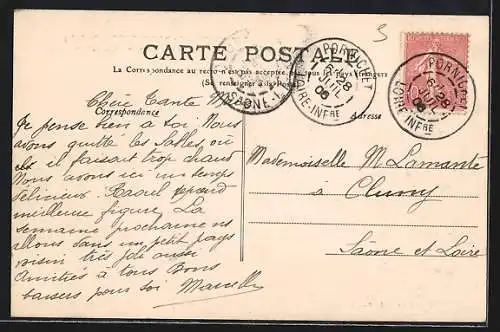 3
CARTE POSTALE
La Correspondance au recto n'est pas acceptée par tous les Pays étrangers
(Se renseigner à la Poste)
Correspondance
Adresse
PORNICHET
6 28
JUIL
06
LOIRE-INFRE
PORNICHET
6 28
06
LOIRE-INFRE
SAONE
Chère Tante M
Je pense bien à toi Nous
avons quitté les Salles où
il faisait trop chaud
Nous avons ici un temps
délicieux. Raoul prend
meilleure figure. La
semaine prochaine ns
allons dans un petit pays
voisin très joli aussi
Amitiés à tous Bons
baisers pour toi Marcelle
Mademoiselle M. Lamante
à Cluny
Saône et Loire